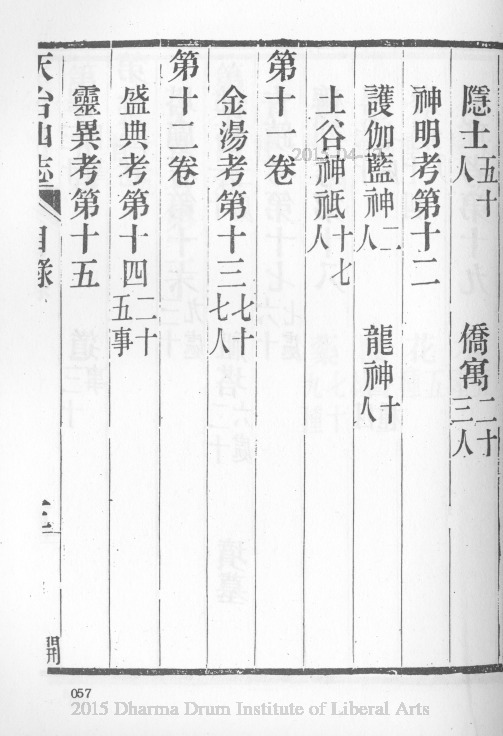 隱士五十人　僑寓二十三人
神明考第十二
護伽藍神二人　龍神十人
土谷神祇十七人
第十一卷
金湯考第十三七十七人
第十二卷
盛典考第十四二十五事
靈異考第十五
天台山志　目錄　三　開
2015-04-
057
2015 Dharma Drum Institute of Liberal Arts